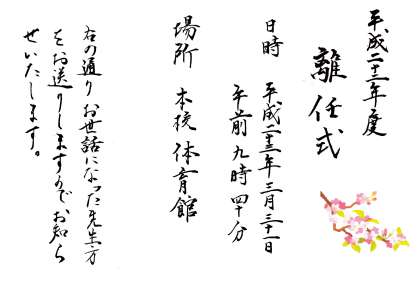 平成二十二年度
離任式
日時 平成二十三年三月三十一日
午前九時四十分
場所 本校体育館
右の通り お世話になった先生方
をお送りしますので お知ら
せいたします。